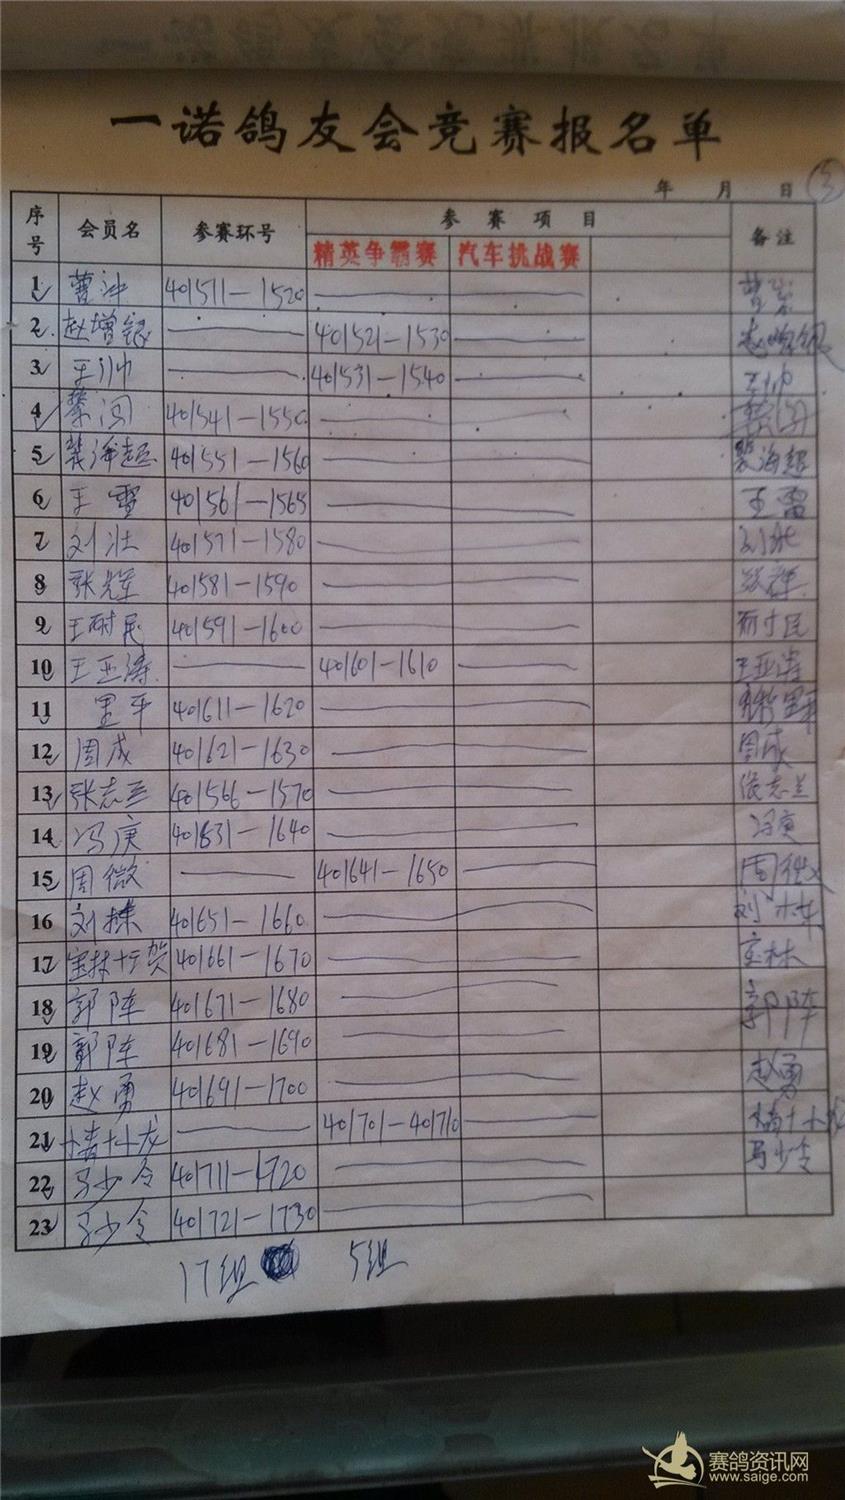 一诺鸽友会竞赛报名单
年 月 日 ③
序号 会员名 参赛环号 参赛项目 备注
精英争霸赛 汽车挑战赛
1 曹冲 401511—1520
2 赵增银 401521—1530
3 王帅 401531—1540 王帅
4 401541—1550
5 裴海超 401551—1560 裴海超
6 王雪 401561—1565 王雪
7 刘壮 401571—1580 刘壮
8 张辉 401581—1590
9 王耐民 401591—1600 耐民
10 王亚涛 401601—1610 王亚涛
11 里平 401611—1620
12 周成 401621—1630 周成
13 张志兰 401566—1570 张志兰
14 冯庚 401631—1640 冯庚
15 周微 401641—1650 周微
16 刘栋 401651—1660 刘栋
17 宝林 401661—1670 宝林
18 郭阵 401671—1680 郭阵
19 郭阵 401681—1690
20 赵勇 401691—1700 赵勇
21 401701—401710
22 马少令 401711—1720 马少令
23 马少令 401721—1730
17组 5组
赛鸽资讯网
www.saige.com